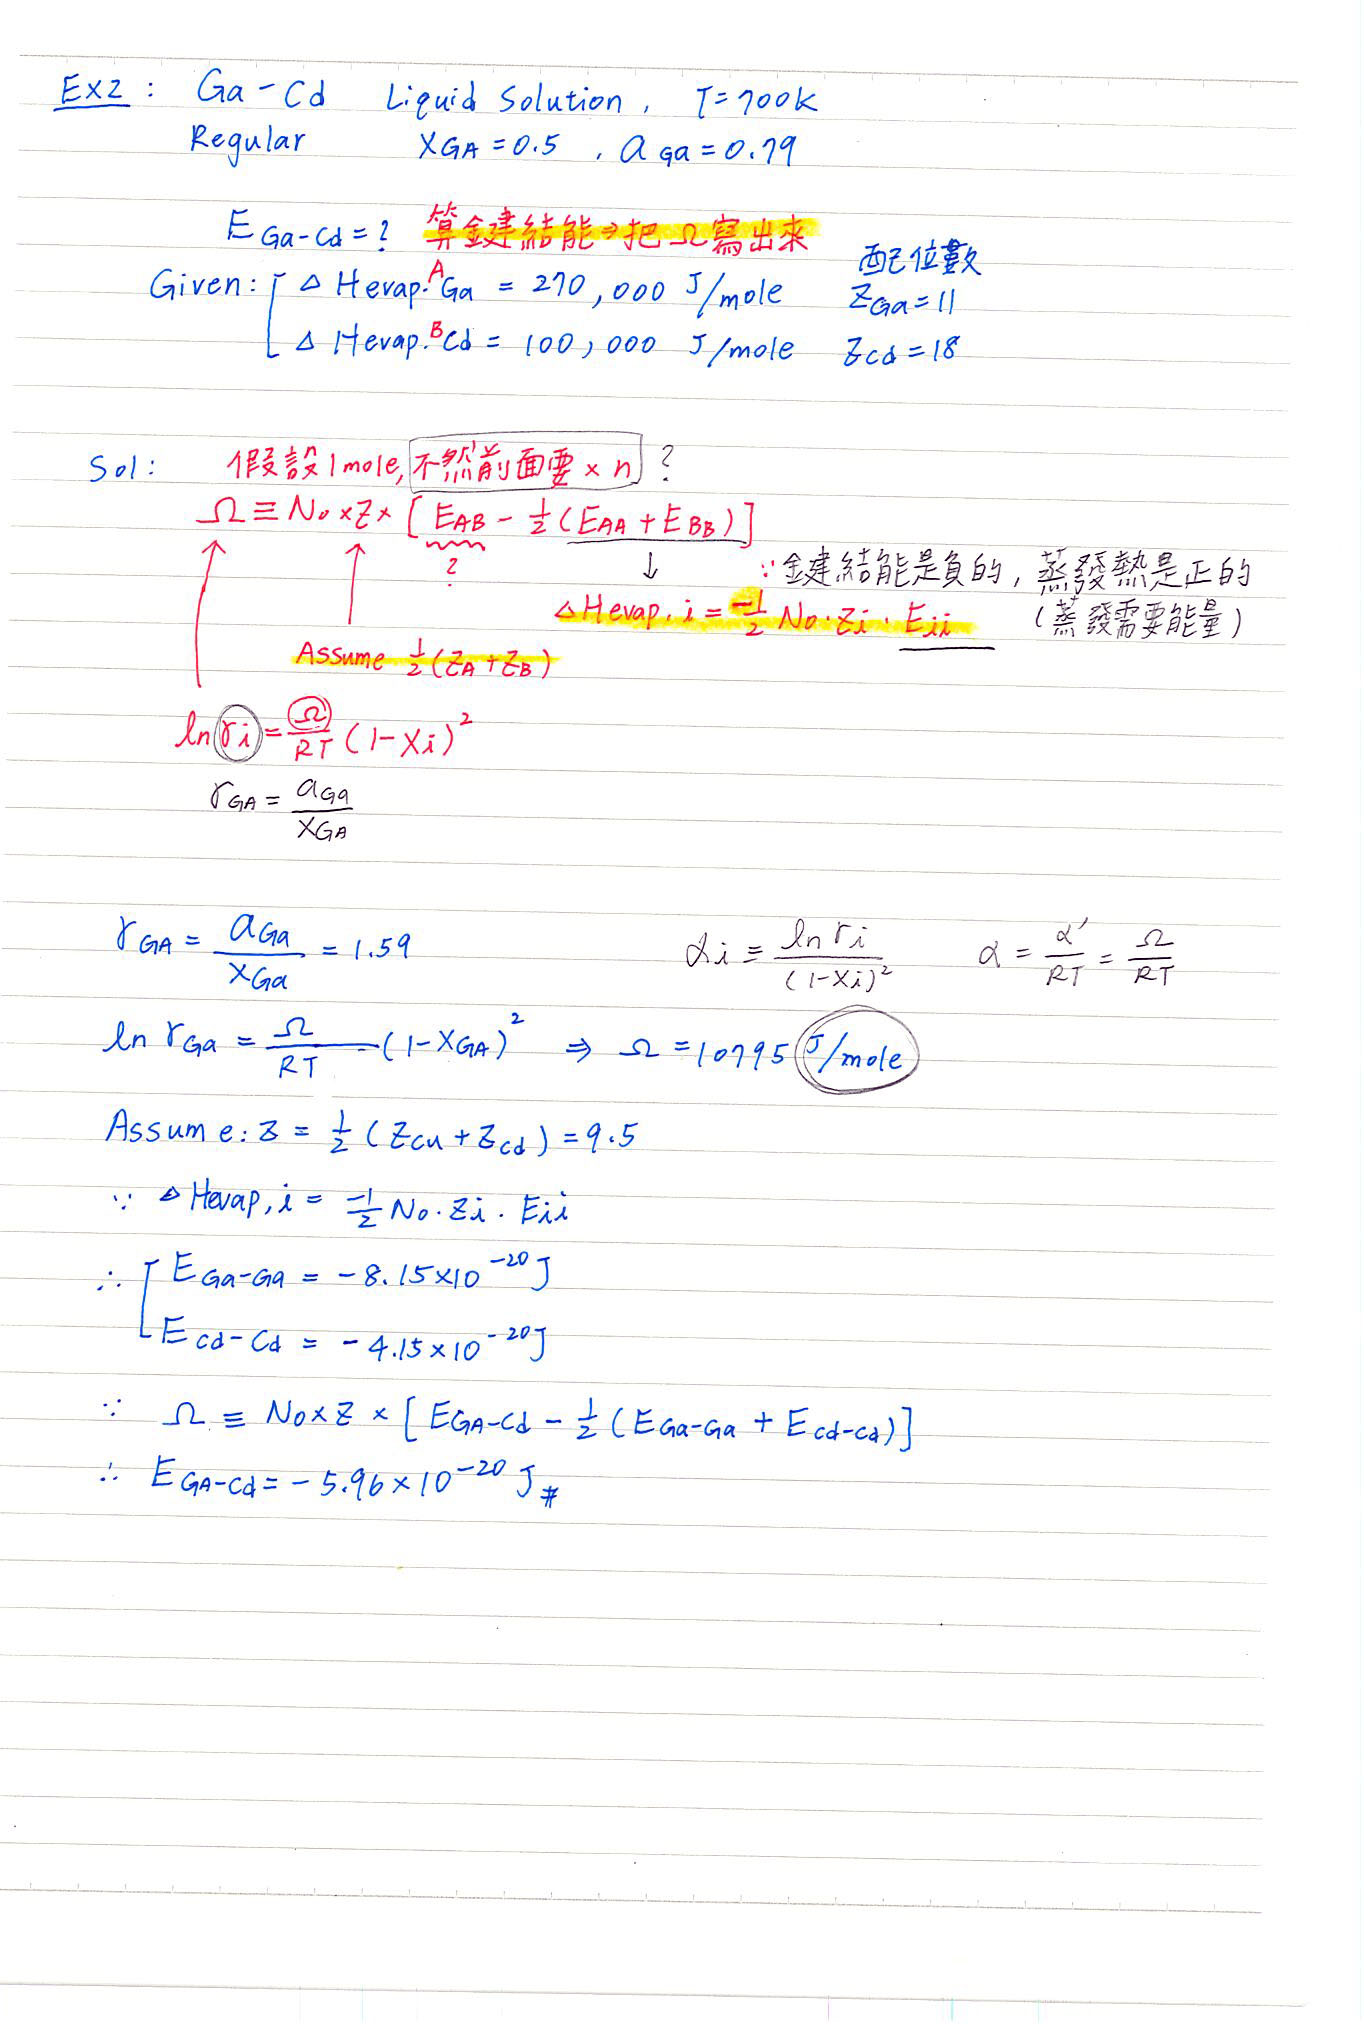 Ex2 : Ga-Cd Liquid Solution, T=700K
Regular XGA=0.5 , aGa=0.79
EGa-Cd=? 算鍵結能⇒把Ω寫出來
配位數
Given: △Hevap.A Ga = 270,000 J/mole ZGa=11
△Hevap.B Cd = 100,000 J/mole Zcd=18
Sol: 假設1mole, 不然前面要×n ?
Ω≡No×Z×[EAB-½(EAA+EBB)]
? ↓ ∵鍵結能是負的, 蒸發熱是正的
△Hevap.i = -½No·Zi·Eii (蒸發需要能量)
Assume ½(ZA+ZB)
ln ri = Ω/RT (1-Xi)²
rGA = aGa/XGA
rGA = aGa/XGa = 1.59 αi ≡ ln ri/(1-Xi)² α = α'/RT = Ω/RT
ln rGa = Ω/RT (1-XGA)² ⇒ Ω=10795 J/mole
Assume: Z = ½(Zcu+Zcd)=9.5
∵ △Hevap,i = -½No·Zi·Eii
∴ EGa-Ga = -8.15×10⁻²⁰J
Ecd-Cd = -4.15×10⁻²⁰J
∵ Ω ≡ No×Z×[EGA-Cd - ½(EGa-Ga + Ecd-cd)]
∴ EGA-Cd = -5.96×10⁻²⁰ J #